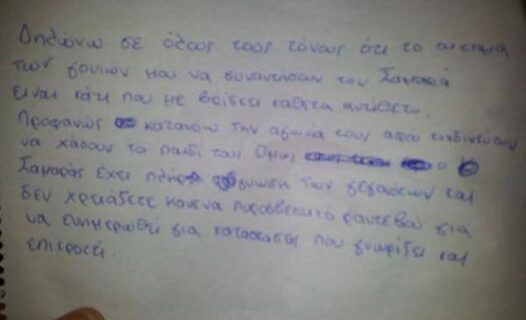 Δηλώνω σε όλους τους τόνους ότι το αίτημα
των γονιών μου να συναντήσουν τον Σαμαρά
είναι κάτι που με βρίσκει κάθετα αντίθετο.
Προφανώς κατανοώ την αγωνία τους αφού κινδυνεύουν
να χάσουν το παιδί τους Όμως ο
Σαμαράς έχει πλήρη γνώση των γεγονότων και
δεν χρειάζεται κανένα παραπάνω ραντεβού για
να ενημερωθεί για καταστάσεις που γνωρίζει και
επικροτεί.